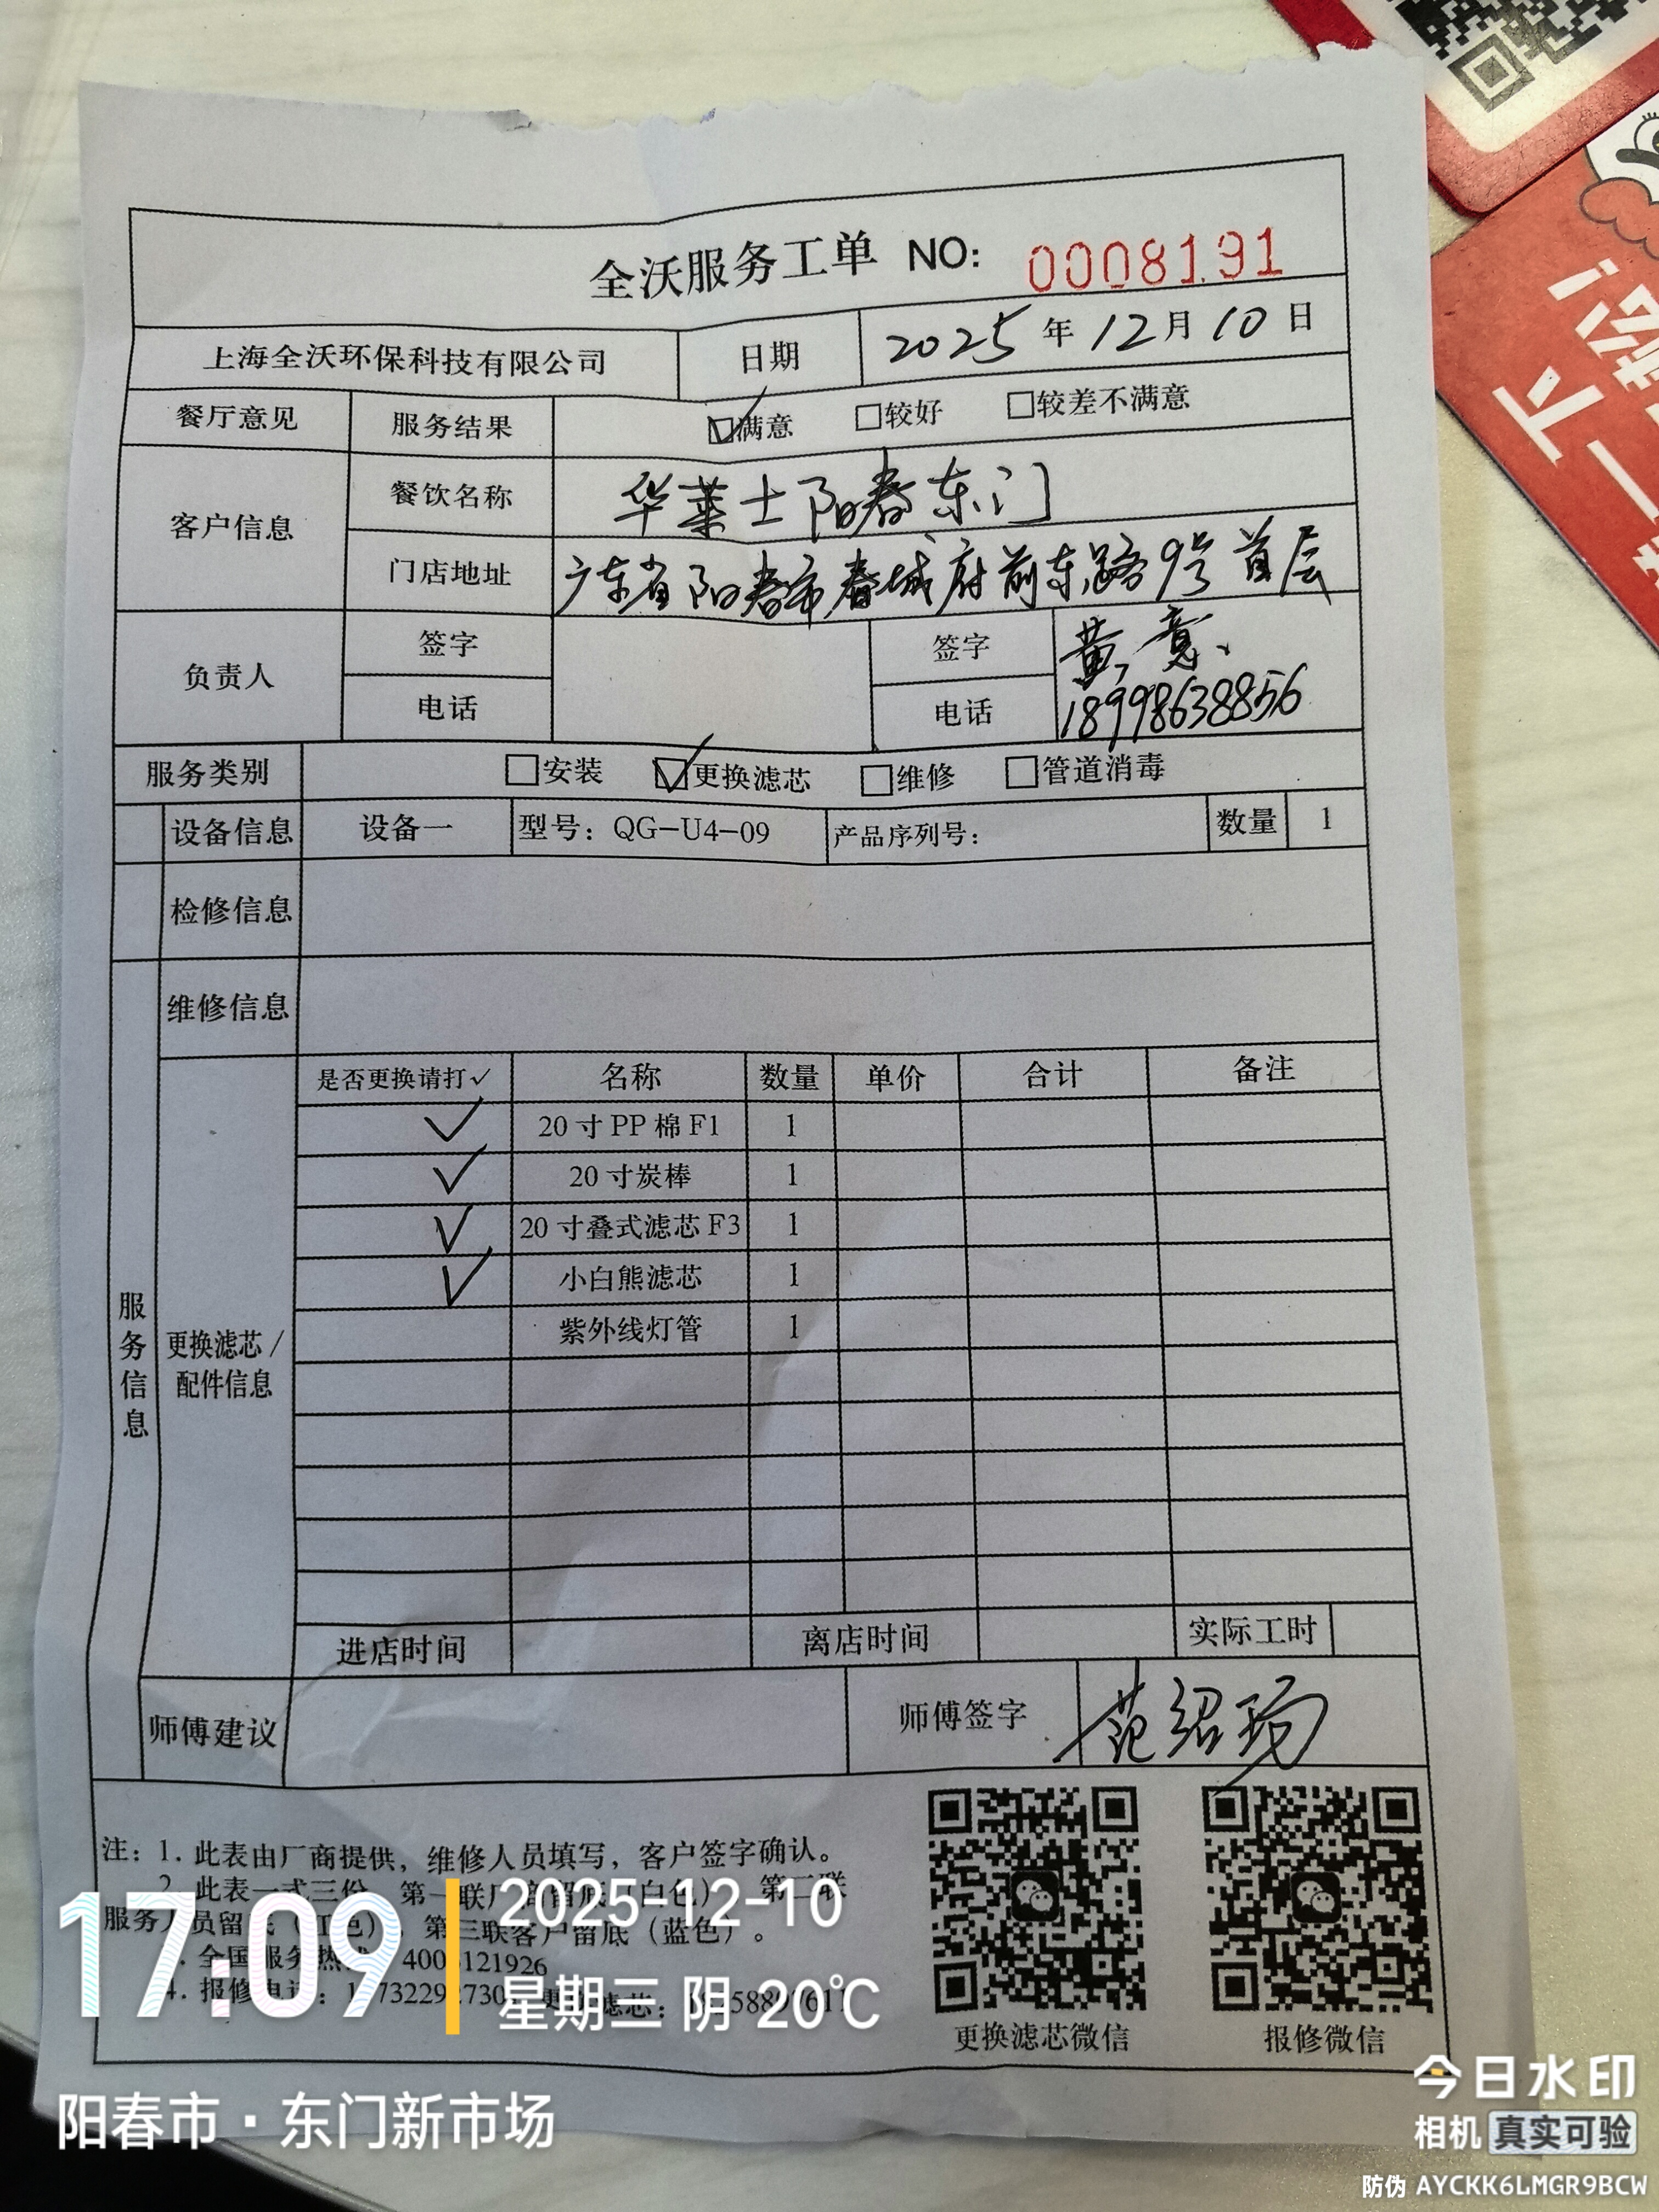 全沃服务工单 NO: 0008191
上海全沃环保科技有限公司 日期 2025年12月10日
餐厅意见 服务结果 ☑满意 □较好 □较差不满意
客户信息 餐饮名称 华莱士阳春东门
门店地址 广东省阳春市春城府前东路9号首层
负责人 签字 签字 黄意
电话 电话 18998638856
服务类别 □安装 ☑更换滤芯 □维修 □管道消毒
设备信息 设备一 型号：QG-U4-09 产品序列号： 数量 1
检修信息
维修信息
服务信息
更换滤芯/
配件信息
是否更换请打√ 名称 数量 单价 合计 备注
√ 20寸PP棉F1 1
√ 20寸炭棒 1
√ 20寸叠式滤芯F3 1
√ 小白熊滤芯 1
紫外线灯管 1
进店时间 离店时间 实际工时
师傅建议 师傅签字 范绍
注：1. 此表由厂商提供，维修人员填写，客户签字确认。
2. 此表一式三份，第一联厂商留底（白色），第二联
服务人员留底（红色），第三联客户留底（蓝色）。
全国服务热线
4. 报修电话： 更换滤芯：
更换滤芯微信 报修微信
17:09
2025-12-10
星期三 阴 20℃
阳春市·东门新市场
今日水印
相机 真实可验
防伪 AYCKK6LMGR9BCW
下
一